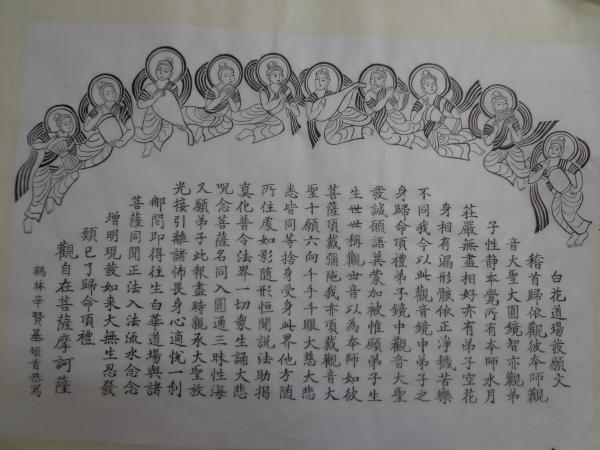 白花道場發願文
稽首歸依觀彼本師觀
音大聖大圓鏡智亦觀弟
子性静本覺所有本師水月
莊嚴無盡相好亦有弟子空花
身相有漏形骸依正淨穢苦樂
不同我今以此觀音鏡中弟子之
身歸命頂禮弟子鏡中觀音大聖
發誠願語冀蒙加被惟願弟子生
生世世稱觀世音以為本師如彼
菩薩頂戴彌陁我亦頂戴觀音大
聖十願六向千手千眼大慈大悲
悉皆同等捨身受身此界他方隨
所住處如影随形恒聞說法助揚
真化普令法界一切衆生誦大悲
呪念菩薩名同入圓通三昧性海
又願弟子此報盡時親承大聖放
光接引離諸怖畏身心適悅一刹
那間即得往生白華道場與諸
菩薩同聞正法入法流水念念
增明現發如來大無生忍發
願已了歸命頂禮
觀自在菩薩摩訶薩
鶴林辛賢基頓首恭寫